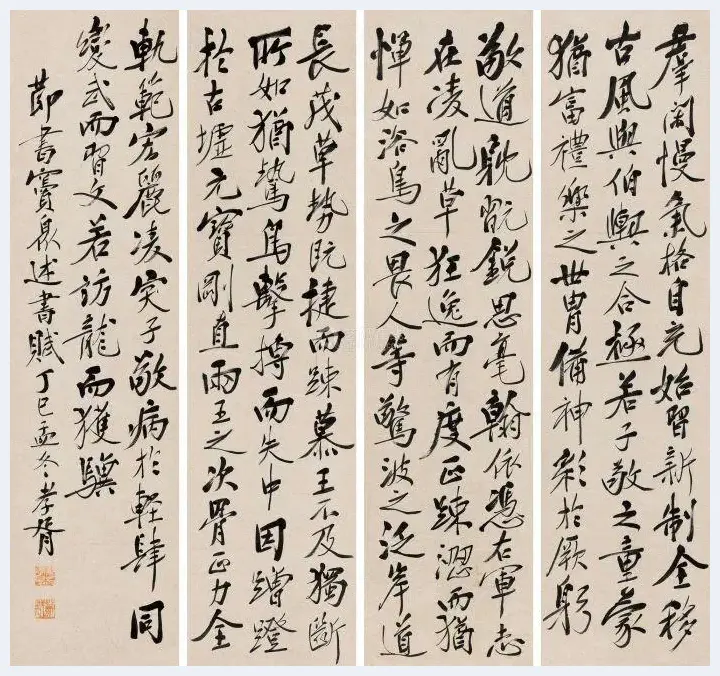 羣闊慢氣格自充始習新制全移
古風與伯輿之合極若子敬之童蒙
猶富禮樂之世胄備神彩於厥躬
敬道耽翫銳思毫翰依憑右軍志
在凌亂草狂逸而有度正疎澀而猶
憚如浴鳥之畏人等驚波之泛岸道
長茂草勢既捷而疎慕王不及獨斷
所如猶鷙鳥擊搏而失中因蹭蹬
於古墟元寶剛直兩王之次骨正力全
軌範宏麗凌突子敬病於輕肆同
變武而習文若訪龍而獲驥
節書竇臮述書賦丁巳孟冬孝胥